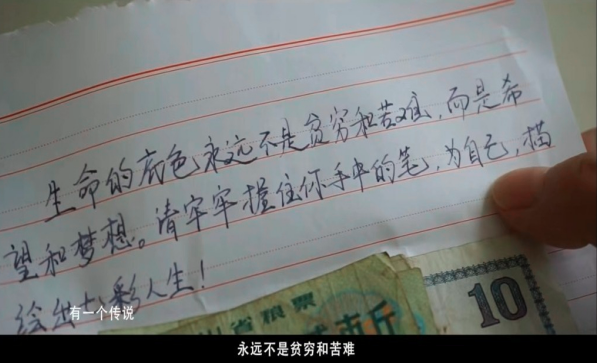 生命的底色永远不是贫穷和苦难，而是希
望和梦想。请牢牢握住你手中的笔，为自己，描
绘出七彩人生！
有一个传说
省粮票
市斤
10
永远不是贫穷和苦难